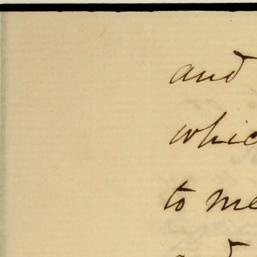 and
which
to me